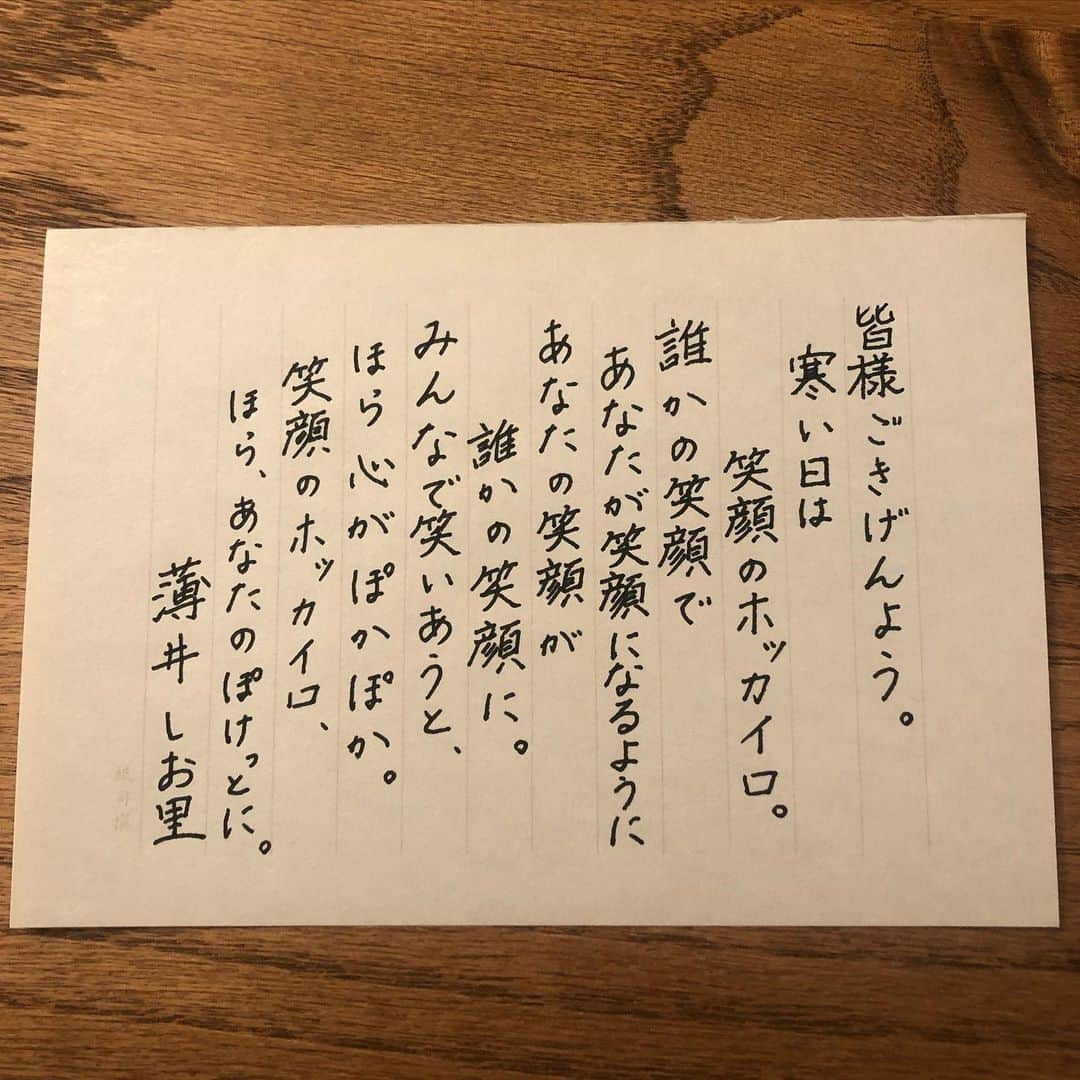 皆様ごきげんよう。
寒い日は
笑顔のホッカイロ。
誰かの笑顔で
あなたが笑顔になるように
あなたの笑顔が
誰かの笑顔に。
みんなで笑いあうと、
ほら心がぽかぽか。
笑顔のホッカイロ、
ほら、あなたのぽけっとに。
薄井しお里